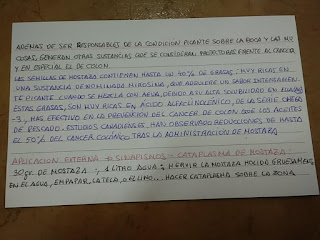 ADEMAS DE SER RESPONSABLES DE LA CONDICION PICANTE SOBRE LA BOCA Y LAS MU
COSAS, GENERAN OTRAS SUSTANCIAS QUE SE CONSIDERAN PROTECTORAS FRENTE AL CANCER
Y EN ESPECIAL EL DE COLON.
LAS SEMILLAS DE MOSTAZA CONTIENEN HASTA UN 40% DE GRASAS; MUY RICAS EN
UNA SUSTANCIA DENOMINADA MIROSINA, QUE ADQUIERE UN SABOR INTENSAMEN.
TE PICANTE CUANDO SE MEZCLA CON AGUA, DEBIDO A SU ALTA SOLUBILIDAD EN AGUA.
ESTAS GRASAS, SON MUY RICAS EN ACIDO ALFALINOLENICO, DE LA SERIE OMEGA
-3, MAS EFECTIVO EN LA PREVENCION DEL CANCER DE COLON QUE LOS ACEITES
DE PESCADO. ESTUDIOS CANADIENSES, HAN OBSERVADO REDUCCIONES DE HASTA
EL 50% DEL CANCER COLONICO TRAS LA ADMINISTRACION DE MOSTAZA
APLICACION EXTERNA → SINAPISMOS = CATAPLASMA DE MOSTAZA:
30 gr. DE MOSTAZA 1 LITRO AGUA: HERVIR LA MOSTAZA MOLIDA GRUESAMENTE
EN EL AGUA, EMPAPAR, LA TELA, O EL LINO... HACER CATAPLASMA SOBRE LA ZONA